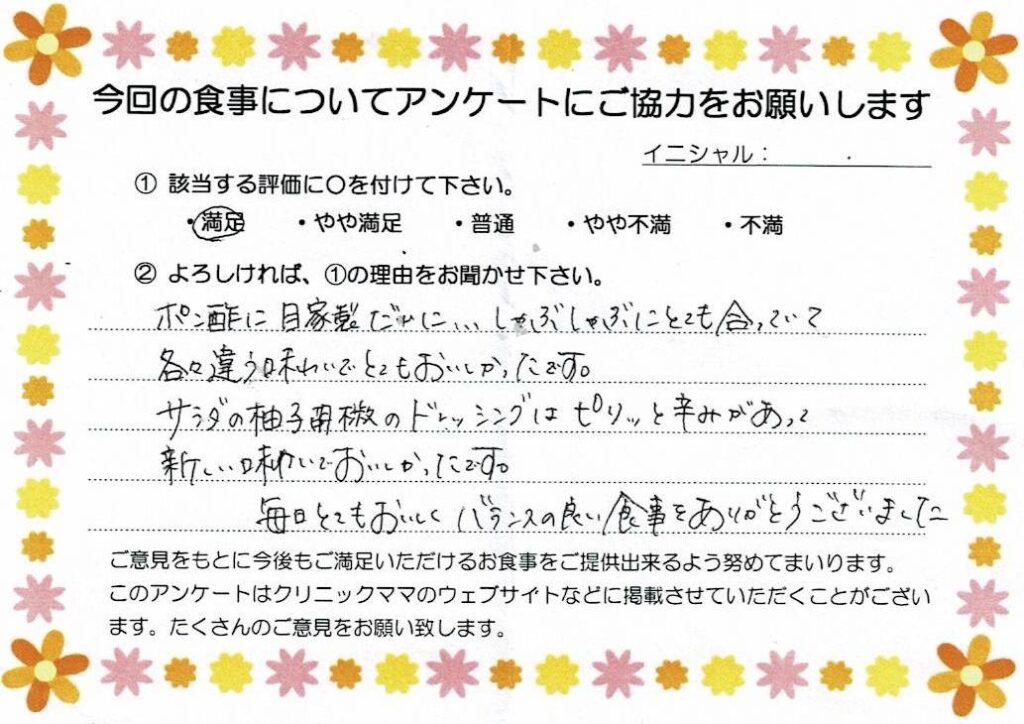 今回の食事についてアンケートにご協力をお願いします
イニシャル：
① 該当する評価に〇を付けて下さい。
・満足 ・やや満足 ・普通 ・やや不満 ・不満
② よろしければ、①の理由をお聞かせ下さい。
ポン酢に自家製だれに... しゃぶしゃぶにとても合っていて
各々違う味わいでとてもおいしかったです。
サラダの柚子胡椒のドレッシングはピリッと辛みがあって
新しい味わいでおいしかったです。
毎日とてもおいしくバランスの良い食事をありがとうございました
ご意見をもとに今後もご満足いただけるお食事をご提供出来るよう努めてまいります。
このアンケートはクリニックママのウェブサイトなどに掲載させていただくことがござい
ます。たくさんのご意見をお願い致します。